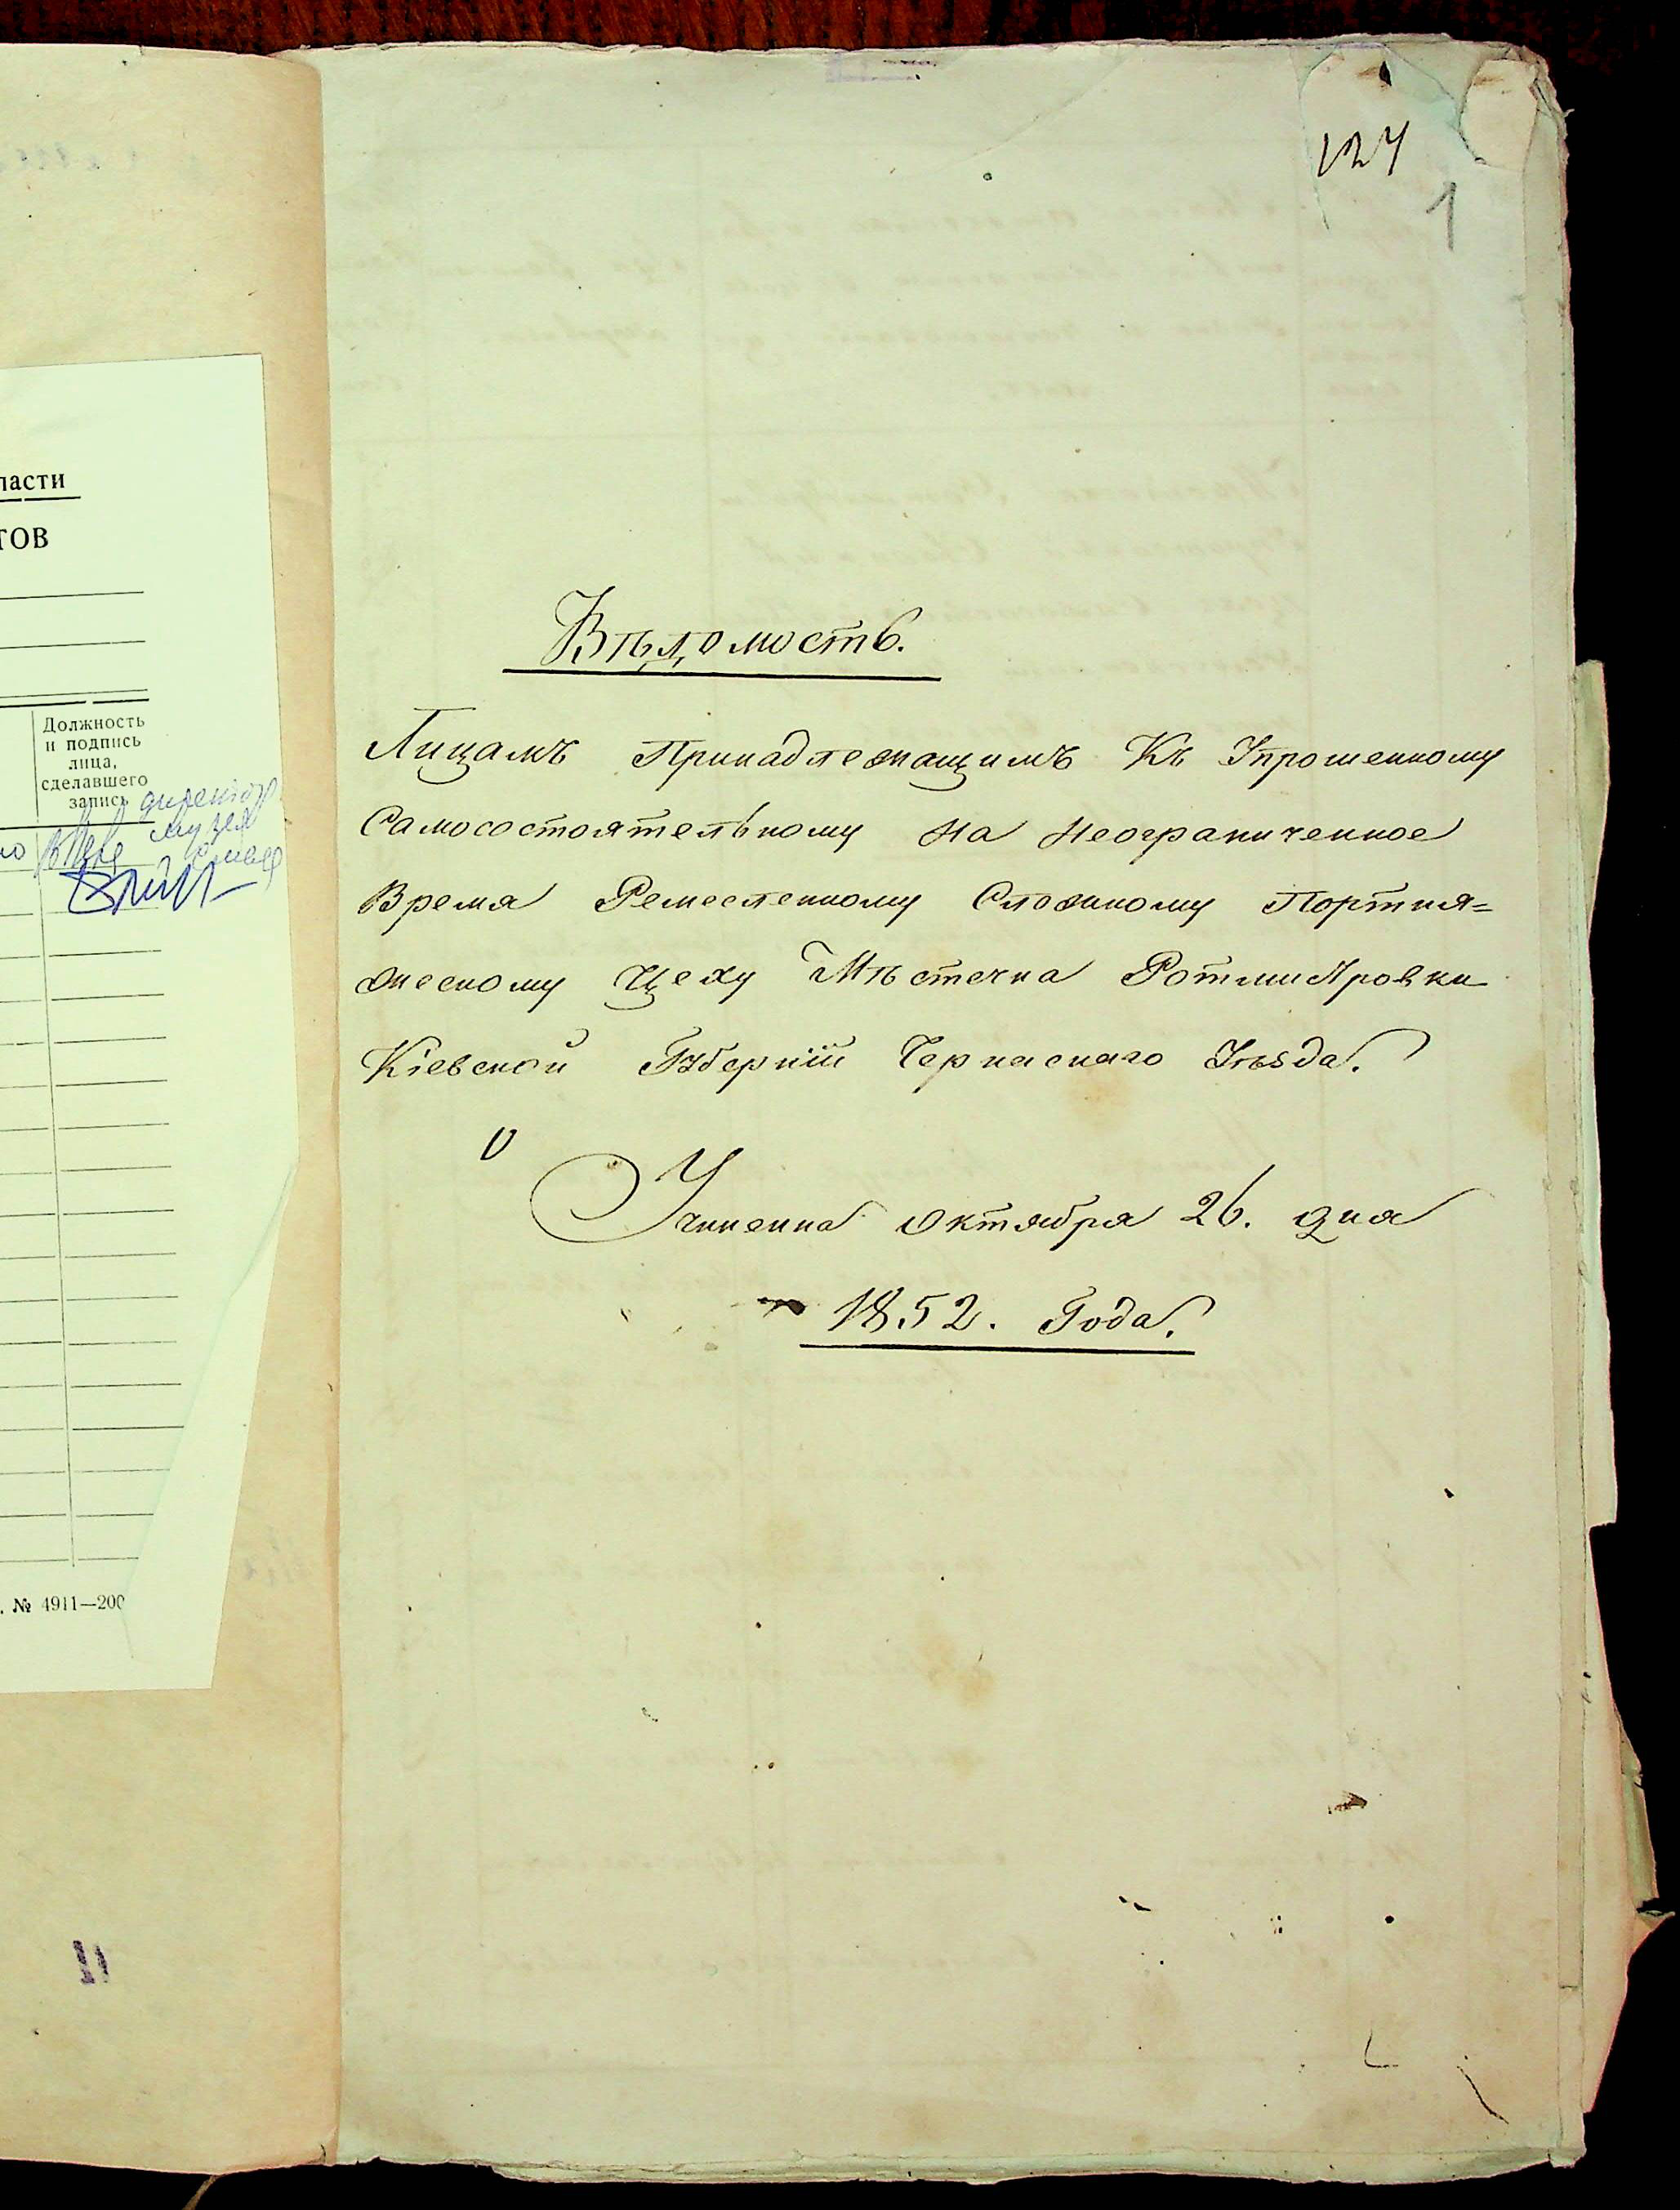 ласти
тов
Должность
и подпись
лица,
сделавшего
запись
директор
музея
. № 4911—200
124
1
Вѣдомость.
Лицамъ Принадлежащимъ Къ Упрошенному
Самосостоятельному на неограниченное
Время Ремесленному Сложному Портня=
жескому Цеху Мѣстечка Ротмистровки
Кіевской Губерніи Черкаскаго Уѣзда.
Учиненна Октября 26. дня
1852. Года.